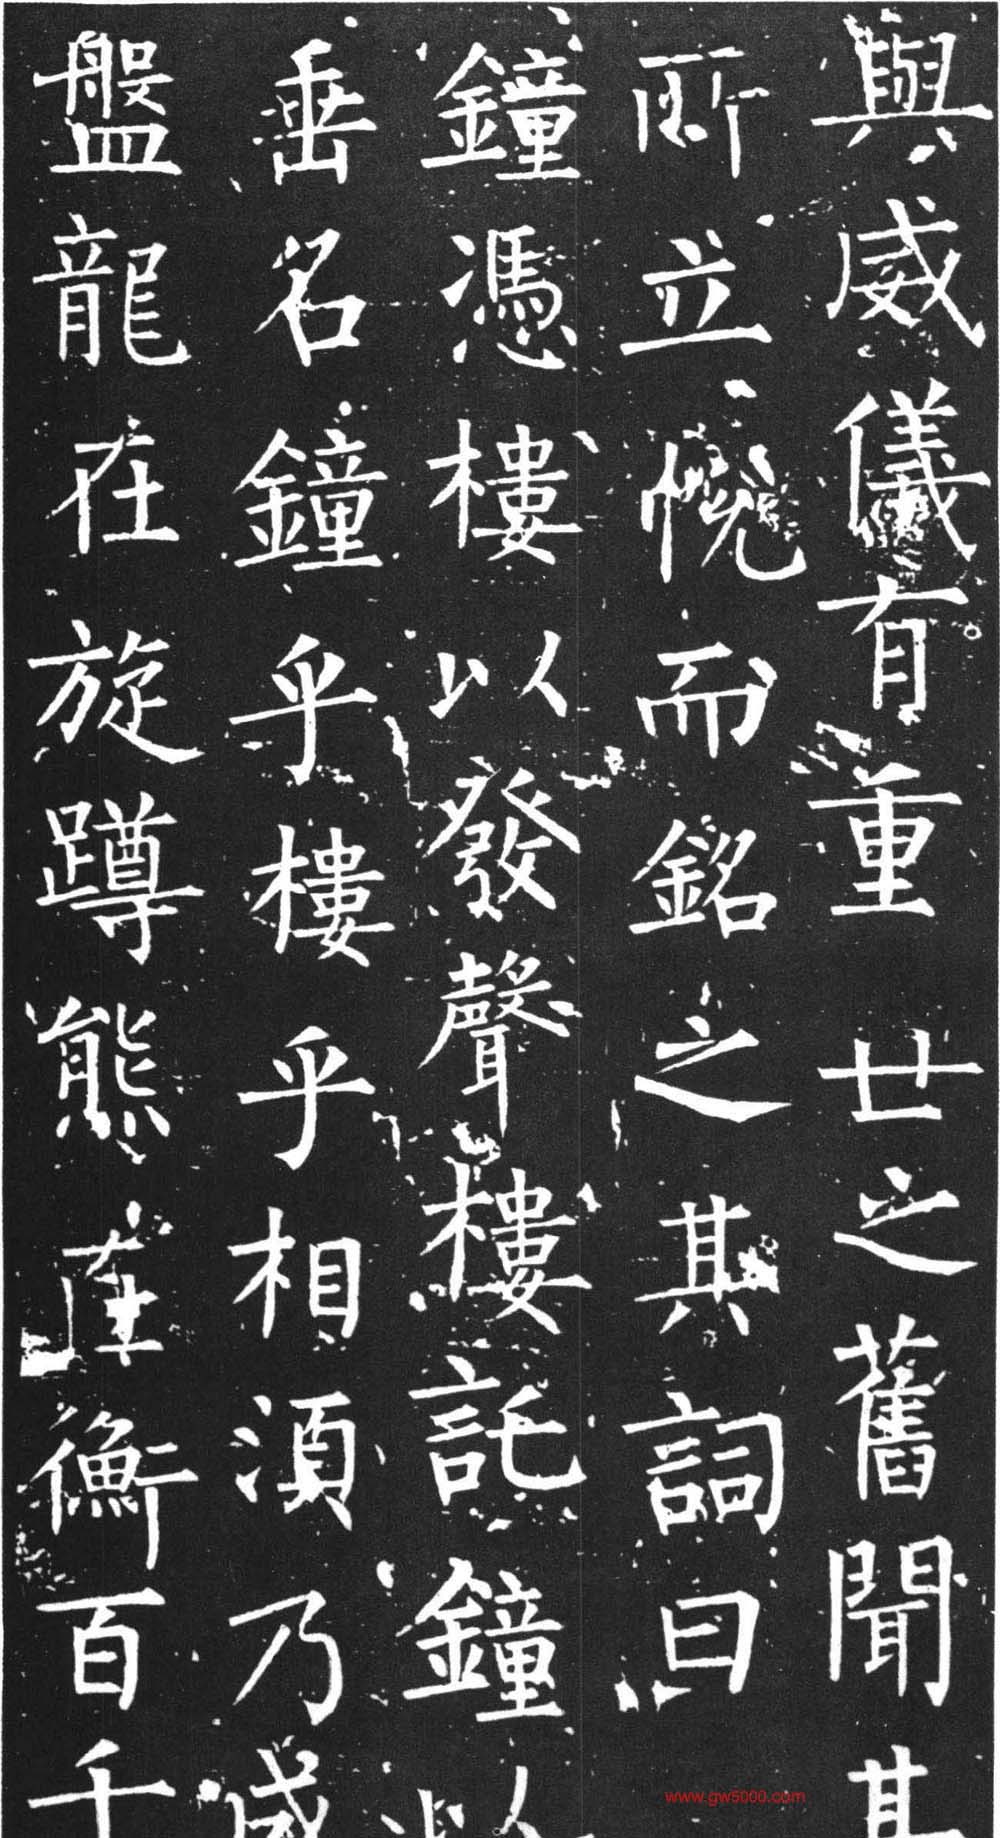 與威儀有重世之舊聞其
所立悅而銘之其詞曰
鐘憑樓以發聲樓託鐘以
垂名鐘乎樓乎相須乃成
盤龍在旋蹲熊在衡百千
www.gw5000.com